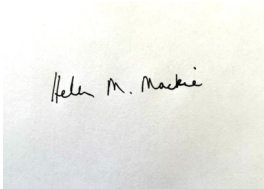 Helen M. Mackie